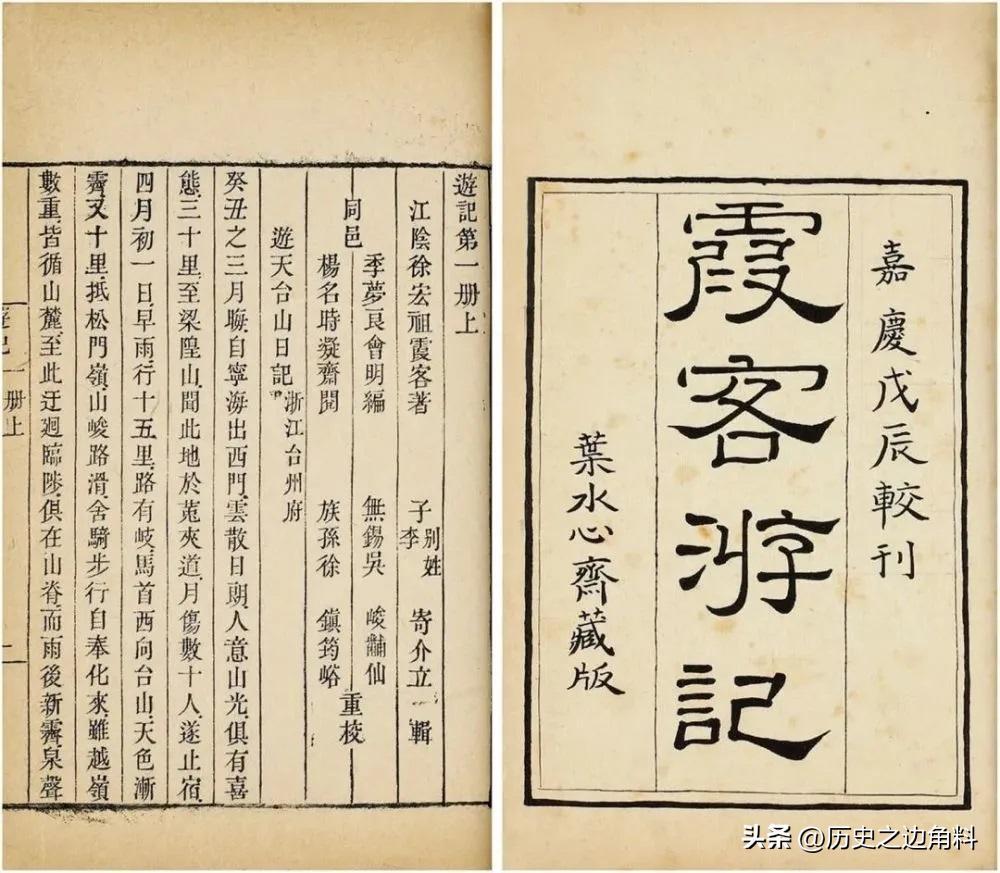 嘉慶戊辰較刊
霞客游記
葉水心齋藏版
遊記第一册上
江陰徐宏祖霞客著 子别姓李寄介立 輯
季夢良會明編 無錫吳 峻黼仙
同邑 重校
楊名時凝齋閱 族孫徐 鎮筠峪
遊天台山日記 浙江台州府
癸丑之三月晦、自寧海出西門、雲散日朗、人意山光、俱有喜
態、三十里、至梁隍山、聞此地於菟夾道、月傷數十人、遂止宿、
四月初一日、早雨、行十五里、路有岐、馬首西向台山、天色漸
霽、又十里、抵松門嶺、山峻路滑、舍騎步行、自奉化來、雖越嶺
數重、皆循山麓、至此迂迴臨陟、俱在山脊、而雨後新霽、泉聲
遊記一册上
头条 @历史之边角料